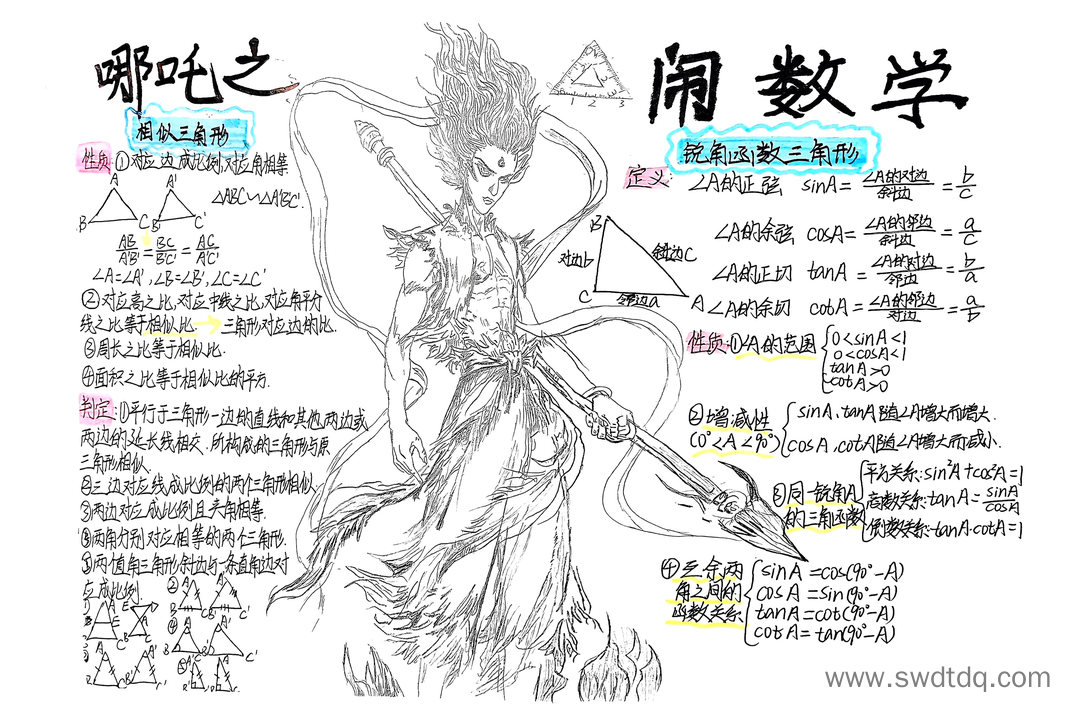 哪吒之
闹数学
相似三角形
性质 ①对应边成比例,对应角相等
A A'
B C B' C'
△ABC∽△A'B'C'.
AB/A'B' = BC/B'C' = AC/A'C'
∠A=∠A',∠B=∠B',∠C=∠C'
②对应高之比,对应中线之比,对应角平分
线之比等于相似比. → 三角形对应边的比.
③周长之比等于相似比.
④面积之比等于相似比的平方.
判定:①平行于三角形一边的直线和其他两边或
两边的延长线相交.所构成的三角形与原
三角形相似.
②三边对应线成比例的两个三角形相似
③两边对应成比例且夹角相等.
④两角分别对应相等的两个三角形.
⑤两直角三角形斜边与一条直角边对
应成比例.
1 2 3
锐角函数三角形
定义: ∠A的正弦 sinA= ∠A的对边/斜边 = b/c
∠A的余弦 cosA= ∠A的邻边/斜边 = a/c
∠A的正切 tanA = ∠A的对边/邻边 = b/a
∠A的余切 cotA= ∠A的邻边/对边 = a/b
B
对边b 斜边C
C 邻边a A
性质:①∠A的范围 { 0<sinA<1
0<cosA<1
tanA>0
cotA>0
②增减性 { sinA.tanA随∠A增大而增大.
(0°<A<90°) cosA,cotA随∠A增大而减小.
③同一锐角A { 平方关系:sin²A+cos²A=1
的三角函数 商数关系:tanA= sinA/cosA
倒数关系:tanA·cotA=1
④互余两 { sinA=cos(90°-A)
角之间的 cosA=sin(90°-A)
函数关系 tanA=cot(90°-A)
cotA=tan(90°-A)
www.swdtdq.com